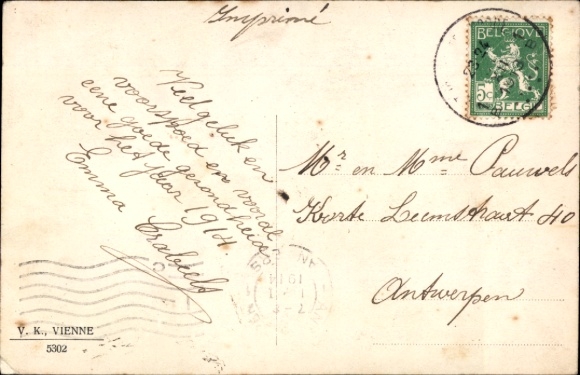 Imprimé
BELGIQUE
5c
BELGIË
Veel geluk en
voorspoed en vooral
eene goede gezondheid
voor het jaar 1914
Emma Crabbeels
Mr en Mme Pauwels
Korte Leemstraat 40
Antwerpen
V. K., VIENNE
5302